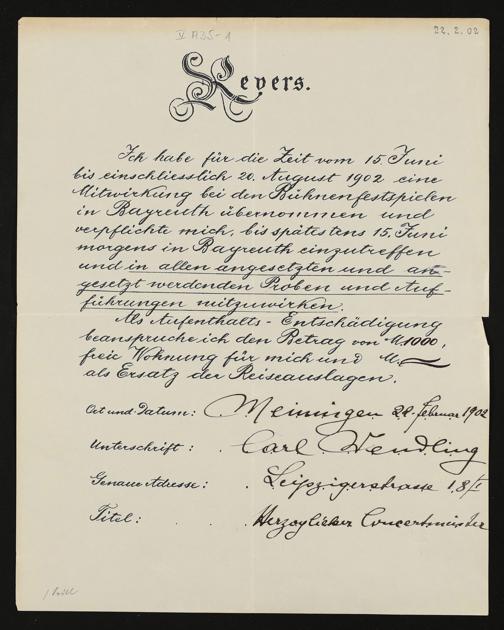 V A35-1
22. 2. 02
Revers.
Ich habe für die Zeit vom 15. Juni
bis einschliesslich 20. August 1902 eine
Mitwirkung bei den Bühnenfestspielen
in Bayreuth übernommen und
verpflichte mich, bis spätestens 15. Juni
morgens in Bayreuth einzutreffen
und in allen angesetzten und an-
gesetzt werdenden Proben und Auf-
führungen mitzuwirken.
Als Aufenthalts-Entschädigung
beanspruche ich den Betrag von M. 1000,
freie Wohnung für mich und M. —
als Ersatz der Reiseauslagen.
Ort und Datum: Meiningen 22. Februar 1902
Unterschrift: Carl Wendling
Genaue Adresse: Leipzigerstrasse 1, 8/I
Titel: Herzoglicher Concertmeister